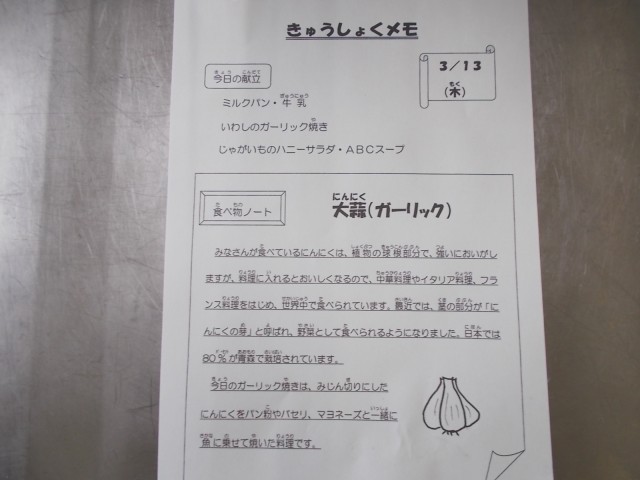 きゅうしょくメモ
3/13
(木)
今日の献立
ミルクパン・牛乳
いわしのガーリック焼き
じゃがいものハニーサラダ・ABCスープ
食べ物ノート
大蒜(ガーリック)
みなさんが食べているにんにくは、植物の球根部分で、強いにおいがし
ますが、料理に入れるとおいしくなるので、中華料理やイタリア料理、フラ
ンス料理をはじめ、世界中で食べられています。最近では、茎の部分が「に
んにくの芽」と呼ばれ、野菜として食べられるようになりました。日本では
80%が青森で栽培されています。
今日のガーリック焼きは、みじん切りにした
にんにくをパン粉やパセリ、マヨネーズと一緒に
魚に乗せて焼いた料理です。